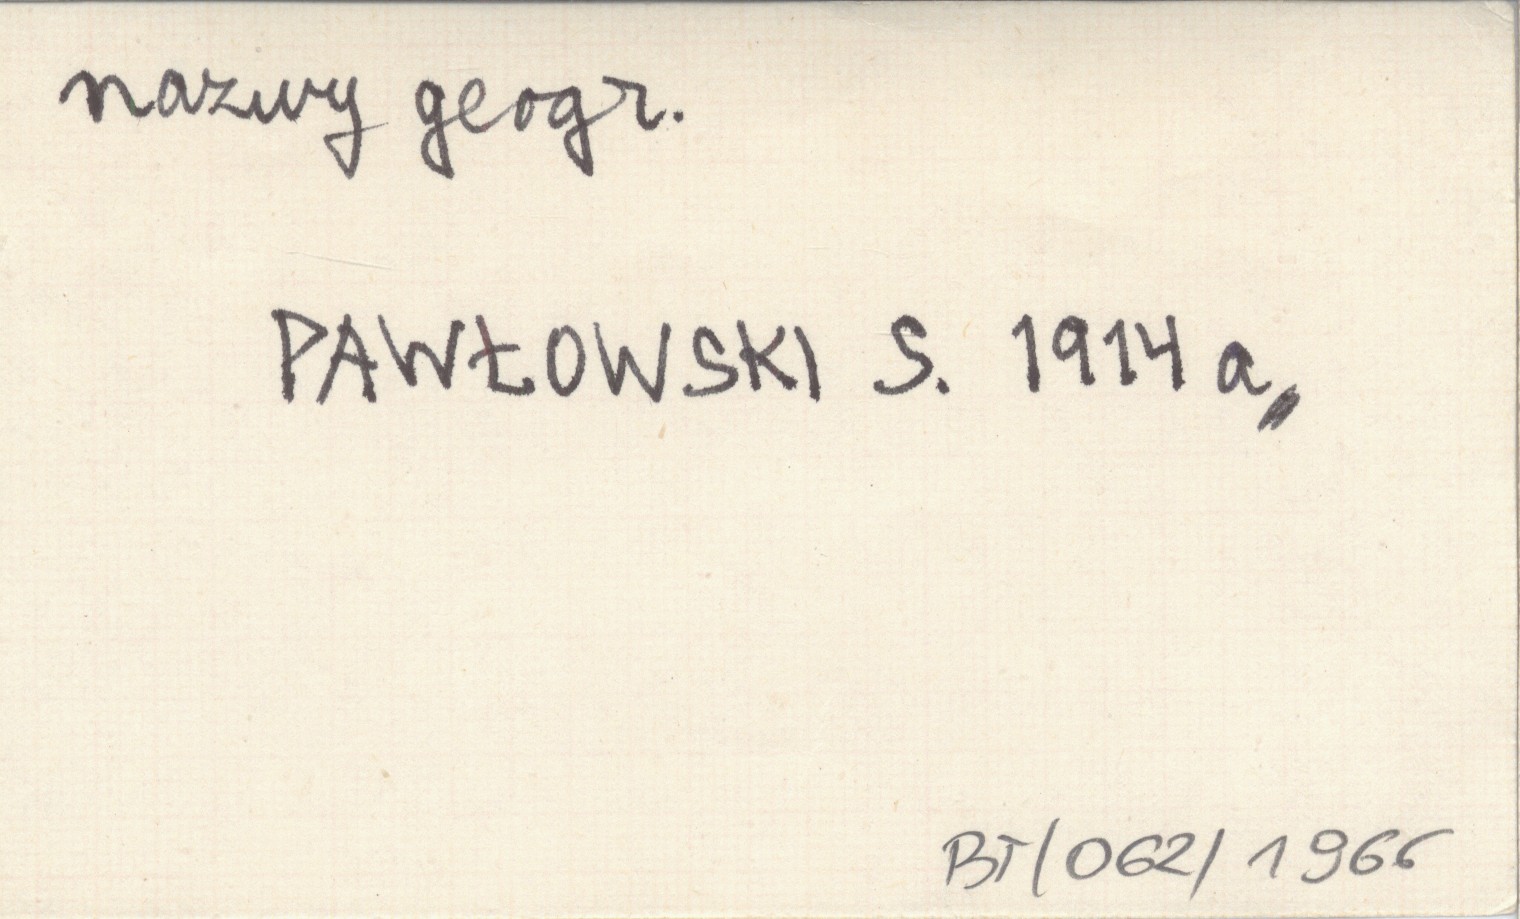 nazwy geogr.
PAWŁOWSKI S. 1914 a
BT/062/1966